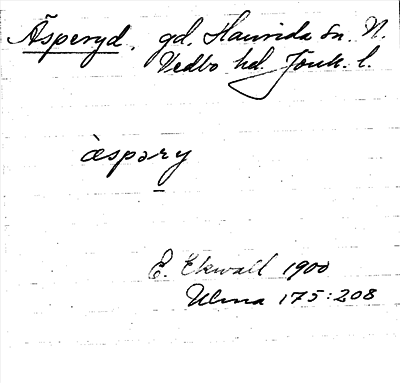 Äsperyd, gd. Haurida sn. N.
Vedbo hd. Jönk. l.
æspəry
E. Ekwall 1900
Ulma 175:208